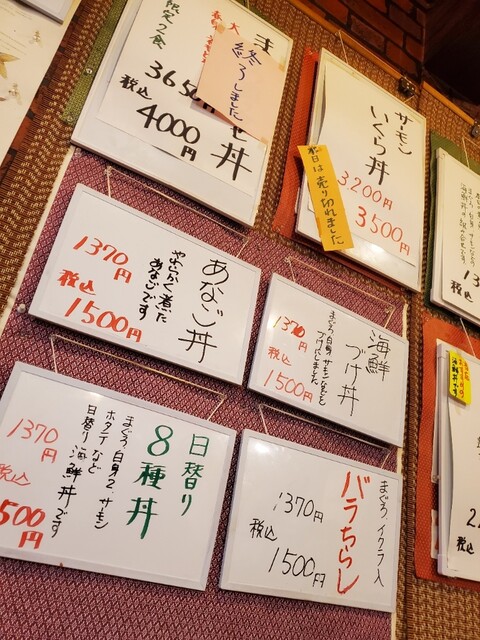 終りました
限定2食
税込
4000円
丼
サーモン
いくら丼
3,200円
3500円
本日は売り切れました
あなご丼
やわらかく煮た
あなごです
1370円
税込
1500円
海鮮
づけ丼
づけにしました
1370
税込
1500円
日替り
8種丼
まぐろ、白身2、サーモン
ホタテなど
日替り海鮮丼です
1370円
税込
500円
まぐろ、イクラ入
バラちらし
1370円
税込
1500円
税込